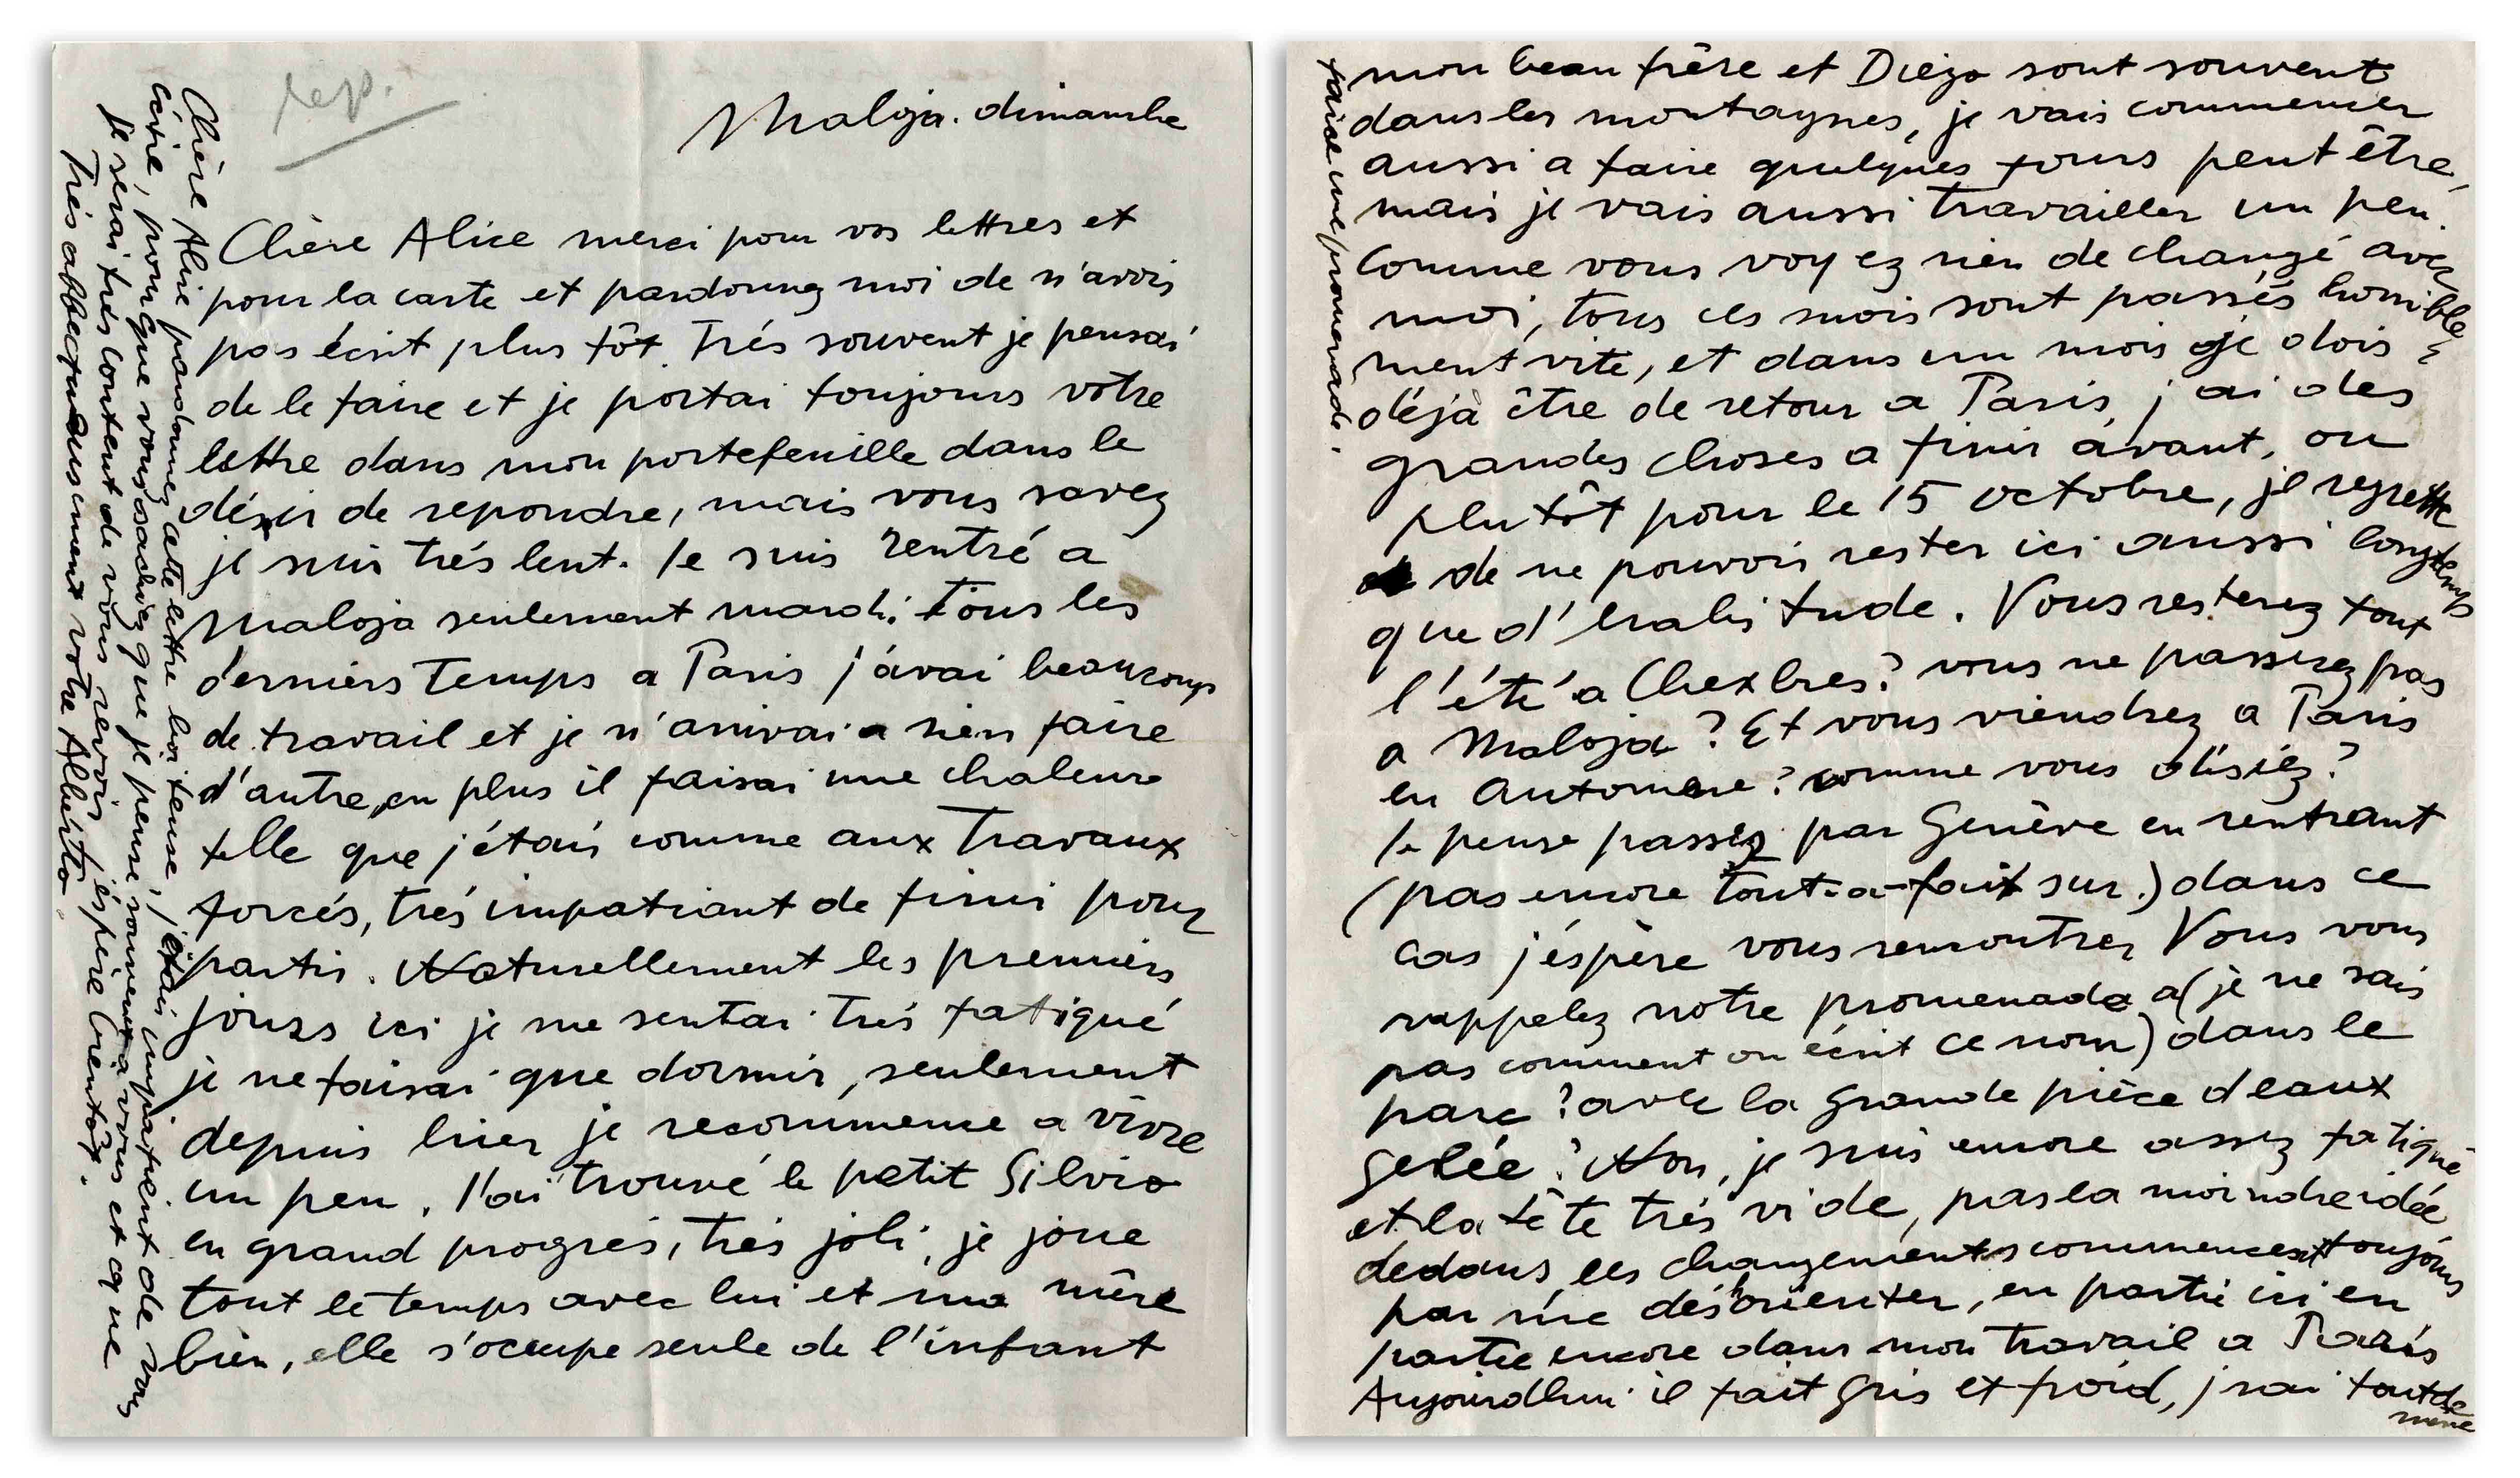 rep.
Maloja. dimanche
Chère Alice merci pour vos lettres et
pour la carte et pardonnez moi de n'avois
pas écrit plus tôt. Trés souvent je pensai
de le faire et je portai toujours votre
lettre dans mon portefeuille dans le
désir de repondre, mais vous savez
je suis trés lent. Je suis rentré a
Maloja seulement mardi. Tous les
derniérs temps a Paris j'avai beaucoup
de travail et je n'arivai a rien faire
d'autre, en plus il faisai une chaleure
telle que j'étais comme aux Travaux
forcés, trés impatiant de finir pour
partir. Naturellement les premiérs
jours ici je me sentai trés fatiqué
je ne faisai que dormir, seulement
depuis hier je recommence a vivre
un peu. J'ai trouvé le petit Silvio
en grand progrés, trés joli, je joue
tout le temps avec lui et ma mère
bien, elle s'occupe seule de l'infant
mon beau frère et Diego sont souvent
dans les montagnes, je vais commencer
aussi a faire quelques tours peut être,
mais je vais aussi travailler un peu.
Comme vous voyez rien de changé avec
moi, tous ces mois sont passés horrible
ment vite, et dans un mois je dois
déjà être de retour a Paris, j'ai des
grandes choses a finir avant, ou
plutôt pour le 15 octobre, je regrette
de ne pouvoir rester ici aussi longtemps
que d'habitude. Vous resterez tout
l'été a Chexbres? vous ne passerez pas
a Maloja? Et vous viendrez a Paris
en Automne? comme vous disiez?
Je pense passer par Genève en rentrant
(pas encore tout-a-fait sur.) dans ce
cas j'éspère vous rencontrer Vous vous
rappelez notre promenade a (je ne sais
pas comment on écrit ce nom) dans le
parc? avec la grande pièce d'eaux
gelée? Non, je suis encore assez fatiqué
et la tête trés vide, pas la moindre idée
dedans, les changements commencent toujours
par me désorienter, en partie ici en
partie encore dans mon travail a Paris
Aujourdhui il fait gris et froid, j'irai tout de
même
faire une promenade.
Chère Alice pardonnez cette lettre boiteuse, j'étais impatient de vous
écrire, pour que vous sachiez que je pense souvent a vous et que
je serai trés content de vous revoir, j'éspère bientôt.
Trés affectueusement votre Alberto